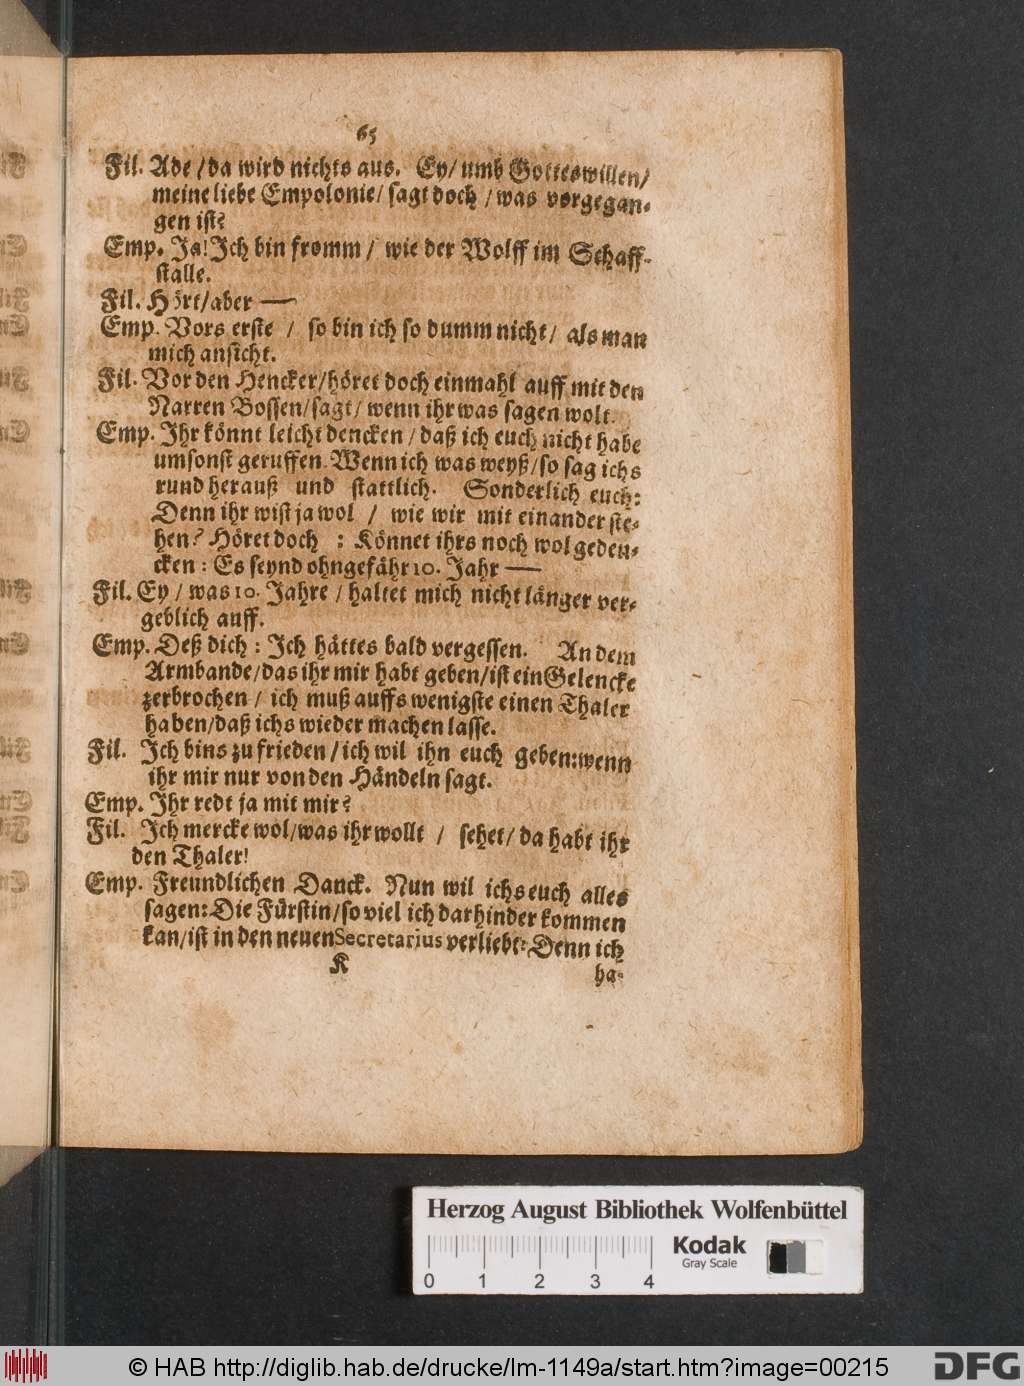 65
Fil. Ade / da wird nichts aus. Ey / umb Gottes willen /
meine liebe Empolonie / sagt doch / was vorgegan-
gen ist?
Emp. Ja! Ich bin fromm / wie der Wolff im Schaff-
stalle.
Fil. Hört / aber —
Emp. Vors erste / so bin ich so dumm nicht / als man
mich ansicht.
Fil. Vor den Hencker / höret doch einmahl auff mit den
Narren Bossen / sagt / wenn ihr was sagen wolt.
Emp. Ihr könnt leicht dencken / daß ich euch nicht habe
umsonst geruffen. Wenn ich was weyß / so sag ichs
rund herauß und stattlich. Sonderlich euch:
Denn ihr wist ja wol / wie wir mit einander ste-
hen? Höret doch : Könnet ihrs noch wol geden-
cken : Es seynd ohngefähr 10. Jahr —
Fil. Ey / was 10. Jahre / haltet mich nicht länger ver-
geblich auff.
Emp. Deß dich : Ich hättes bald vergessen. An dem
Armbande / das ihr mir habt geben / ist ein Gelencke
zerbrochen / ich muß auffs wenigste einen Thaler
haben / daß ichs wieder machen lasse.
Fil. Ich bins zu frieden / ich wil ihn euch geben: wenn
ihr mir nur von den Händeln sagt.
Emp. Ihr redt ja mit mir?
Fil. Ich mercke wol / was ihr wollt / sehet / da habt ihr
den Thaler!
Emp. Freundlichen Danck. Nun wil ichs euch alles
sagen: Die Fürstin / so viel ich darhinder kommen
kan / ist in den neuen Secretarius verliebt: Denn ich
K ha-
Herzog August Bibliothek Wolfenbüttel
Kodak
Gray Scale
0 1 2 3 4
© HAB http://diglib.hab.de/drucke/lm-1149a/start.htm?image=00215
DFG